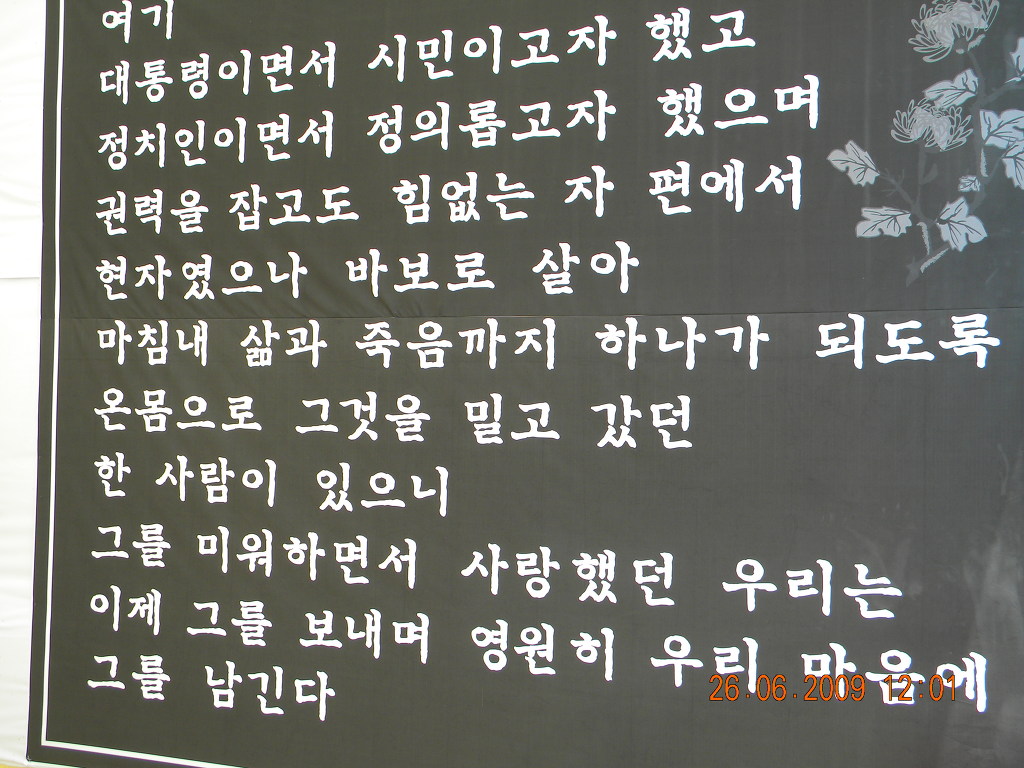 여기
대통령이면서 시민이고자 했고
정치인이면서 정의롭고자 했으며
권력을 잡고도 힘없는 자 편에서
현자였으나 바보로 살아
마침내 삶과 죽음까지 하나가 되도록
온몸으로 그것을 밀고 갔던
한 사람이 있으니
그를 미워하면서 사랑했던 우리는
이제 그를 보내며 영원히 우리 마음에
그를 남긴다
26.06.2009 12:01